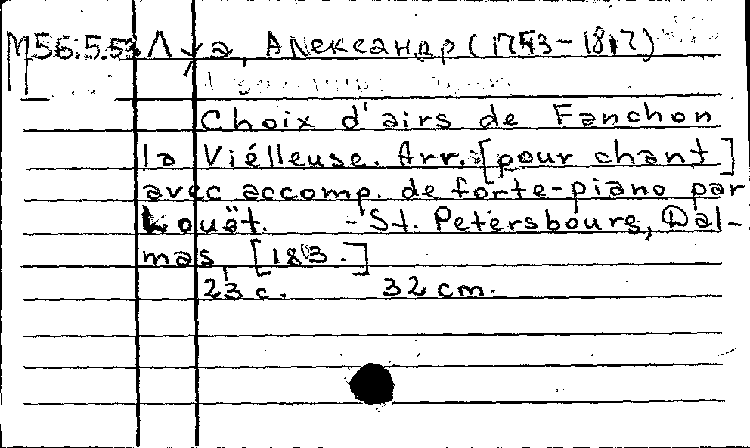 М56.5.53 Луэ, Александр (1753-1817)
Choix d'airs de Fanchon
la Viélleuse. Arr. [pour chant]
avec accomp. de forte-piano par
Louët. - St. Petersbourg, Dal-
mas,
23 c. 32 cm.